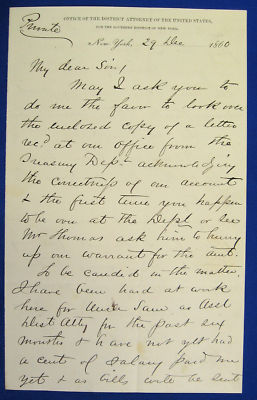 Private
OFFICE OF THE DISTRICT ATTORNEY OF THE UNITED STATES,
FOR THE SOUTHERN DISTRICT OF NEW YORK.
New York, 29 Dec 1860
My dear Sir,
May I ask you to
do me the favor to look over
the enclosed copy of a letter
recd at our office from the
Treasury Dept acknowledging
the correctness of our account
& the first time you happen
to be over at the Dept or see
Mr Thomas ask him to hurry
up our warrant for the amt.
To be candid in the matter
I have been hard at work
here for Uncle Sam as Asst
Dist Atty for the past six
months & have not yet had
a cent of salary paid me
yet & as bills will be sent